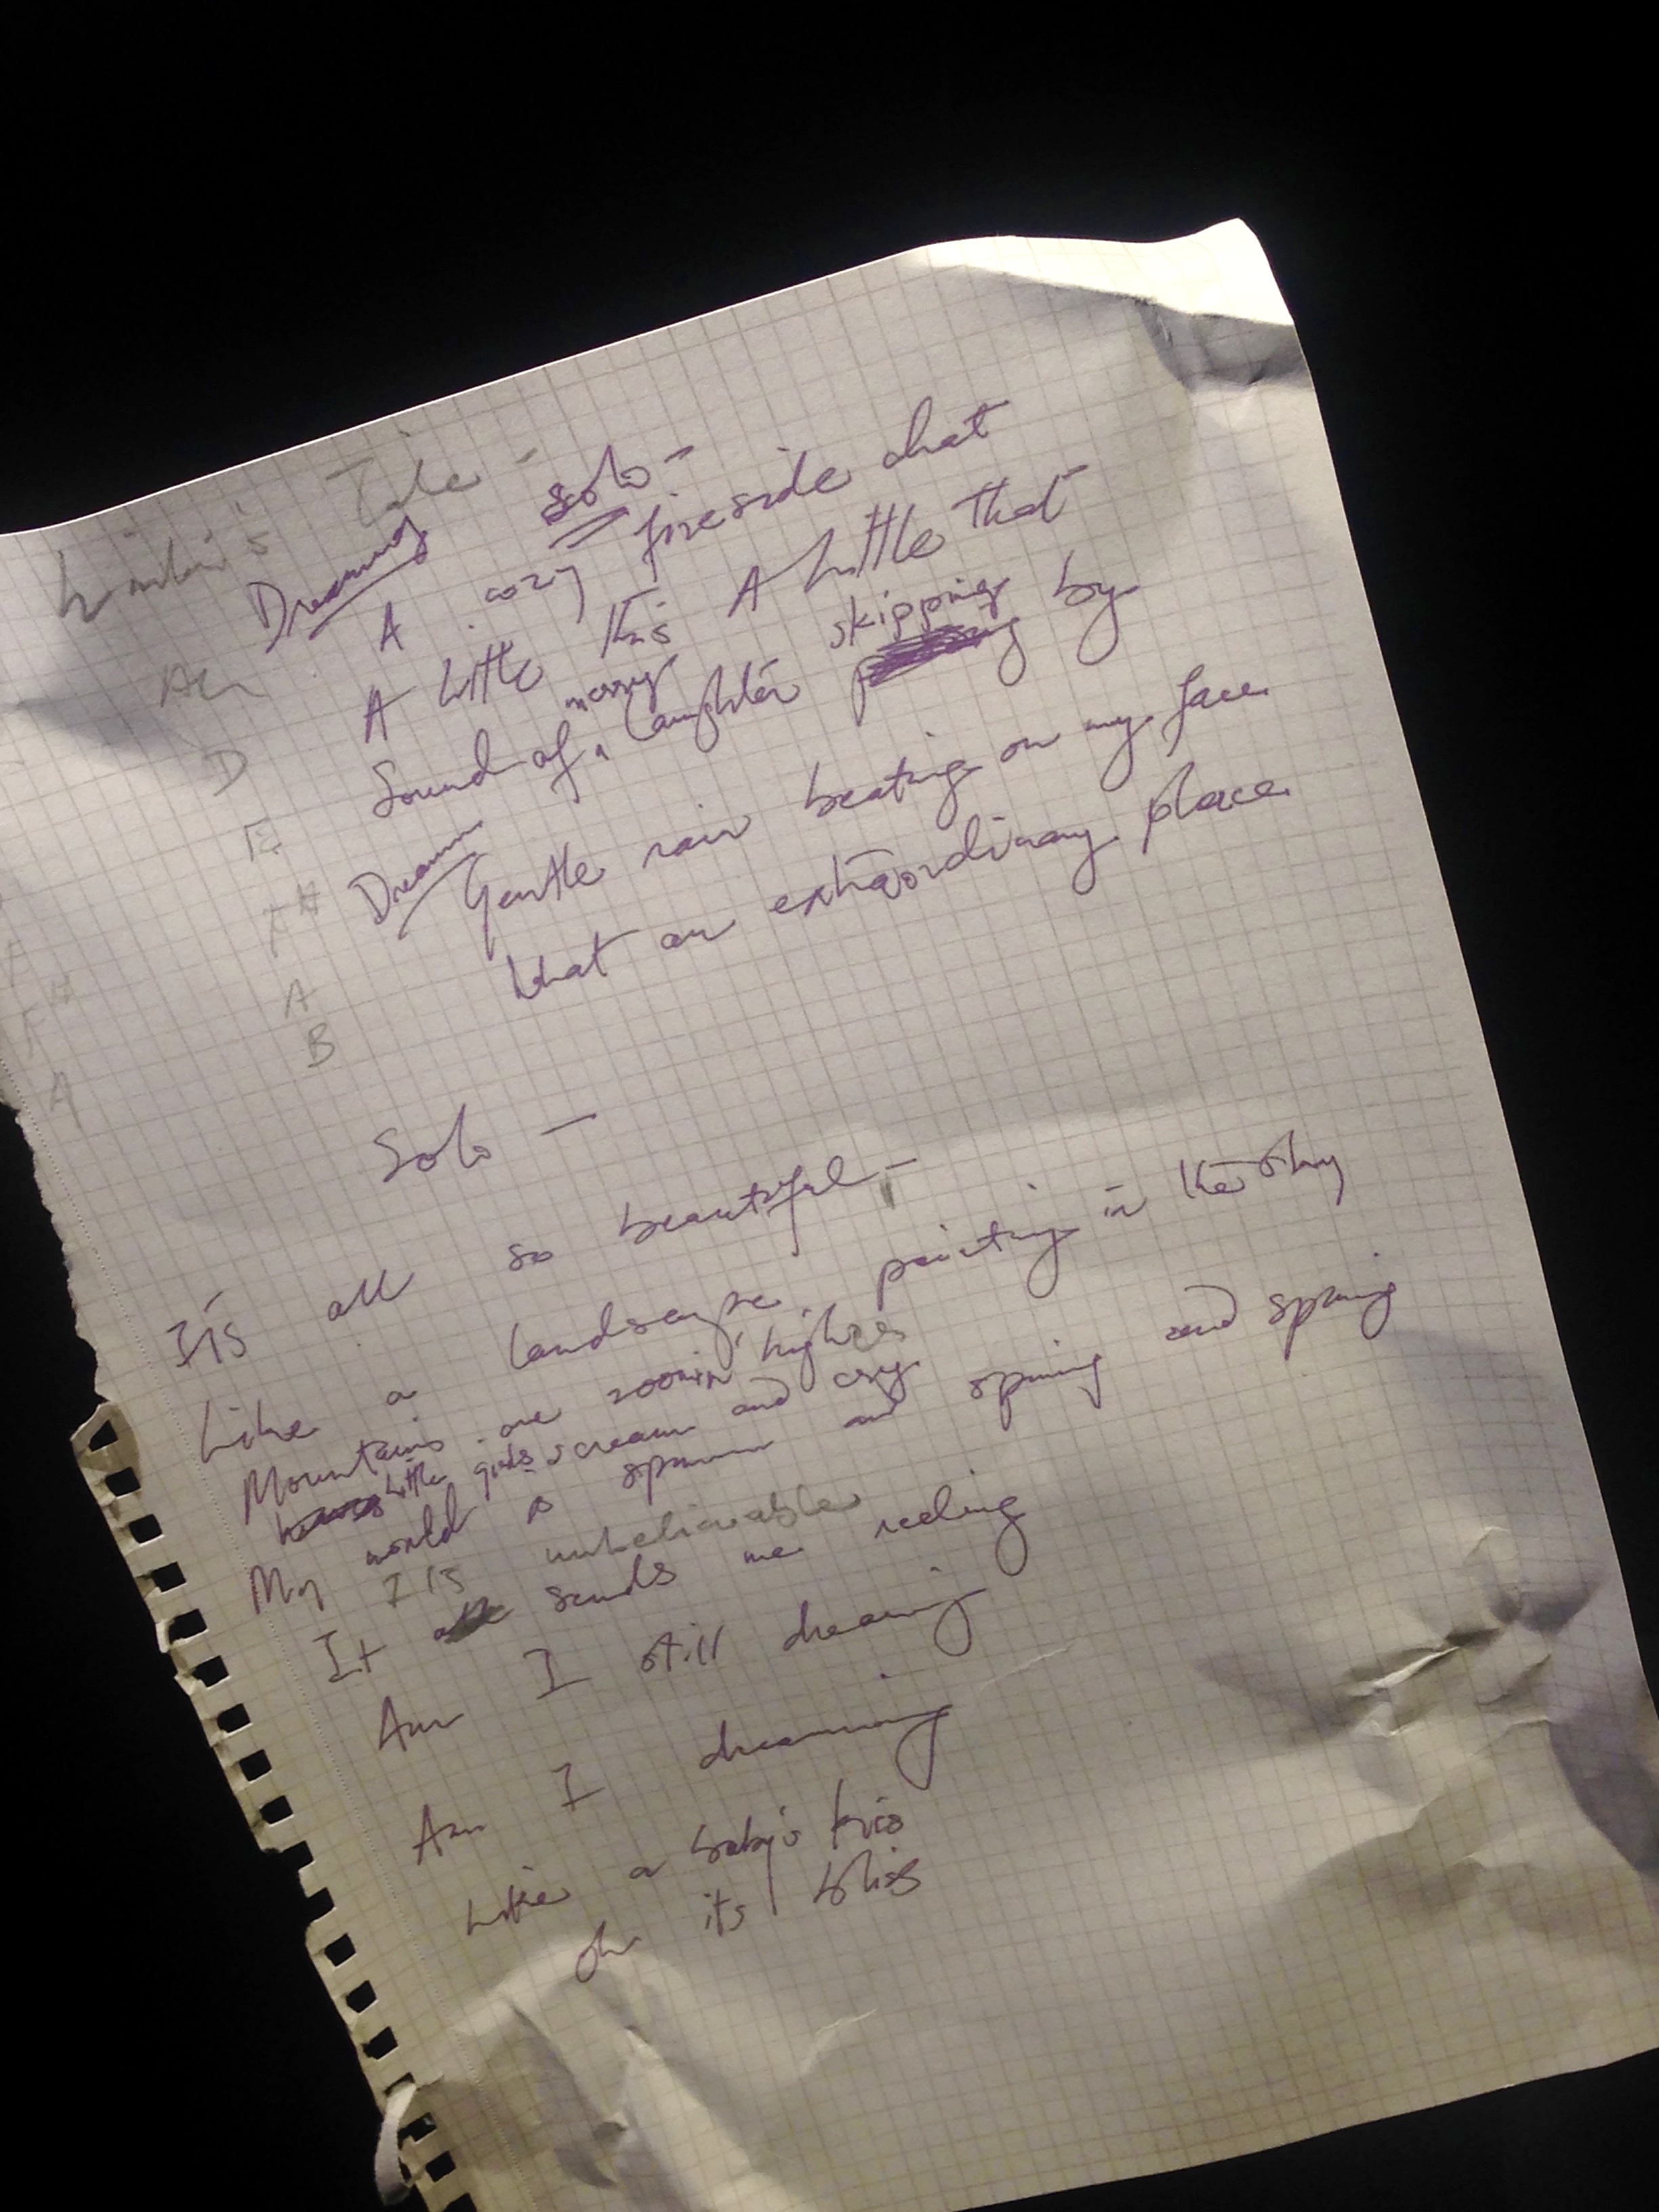 Tale -
Dreaming solo -
A cozy fireside chat
A little this A little that
merry skipping
Sound of a laughter by
Dreamin
Gentle rain beating on my face
What an extraordinary place
Am
D
E
F#
A
B
F#
A
Solo -
It's all so beautiful -
Like a landscape painting in the sky
Mountains are zoomin' higher
Little girls scream and cry
My world is spinnin and spining and spining
It's unbelievable
It sends me reeling
Am I still dreaming
Am I dreamming
Like a baby's kiss
oh its bliss